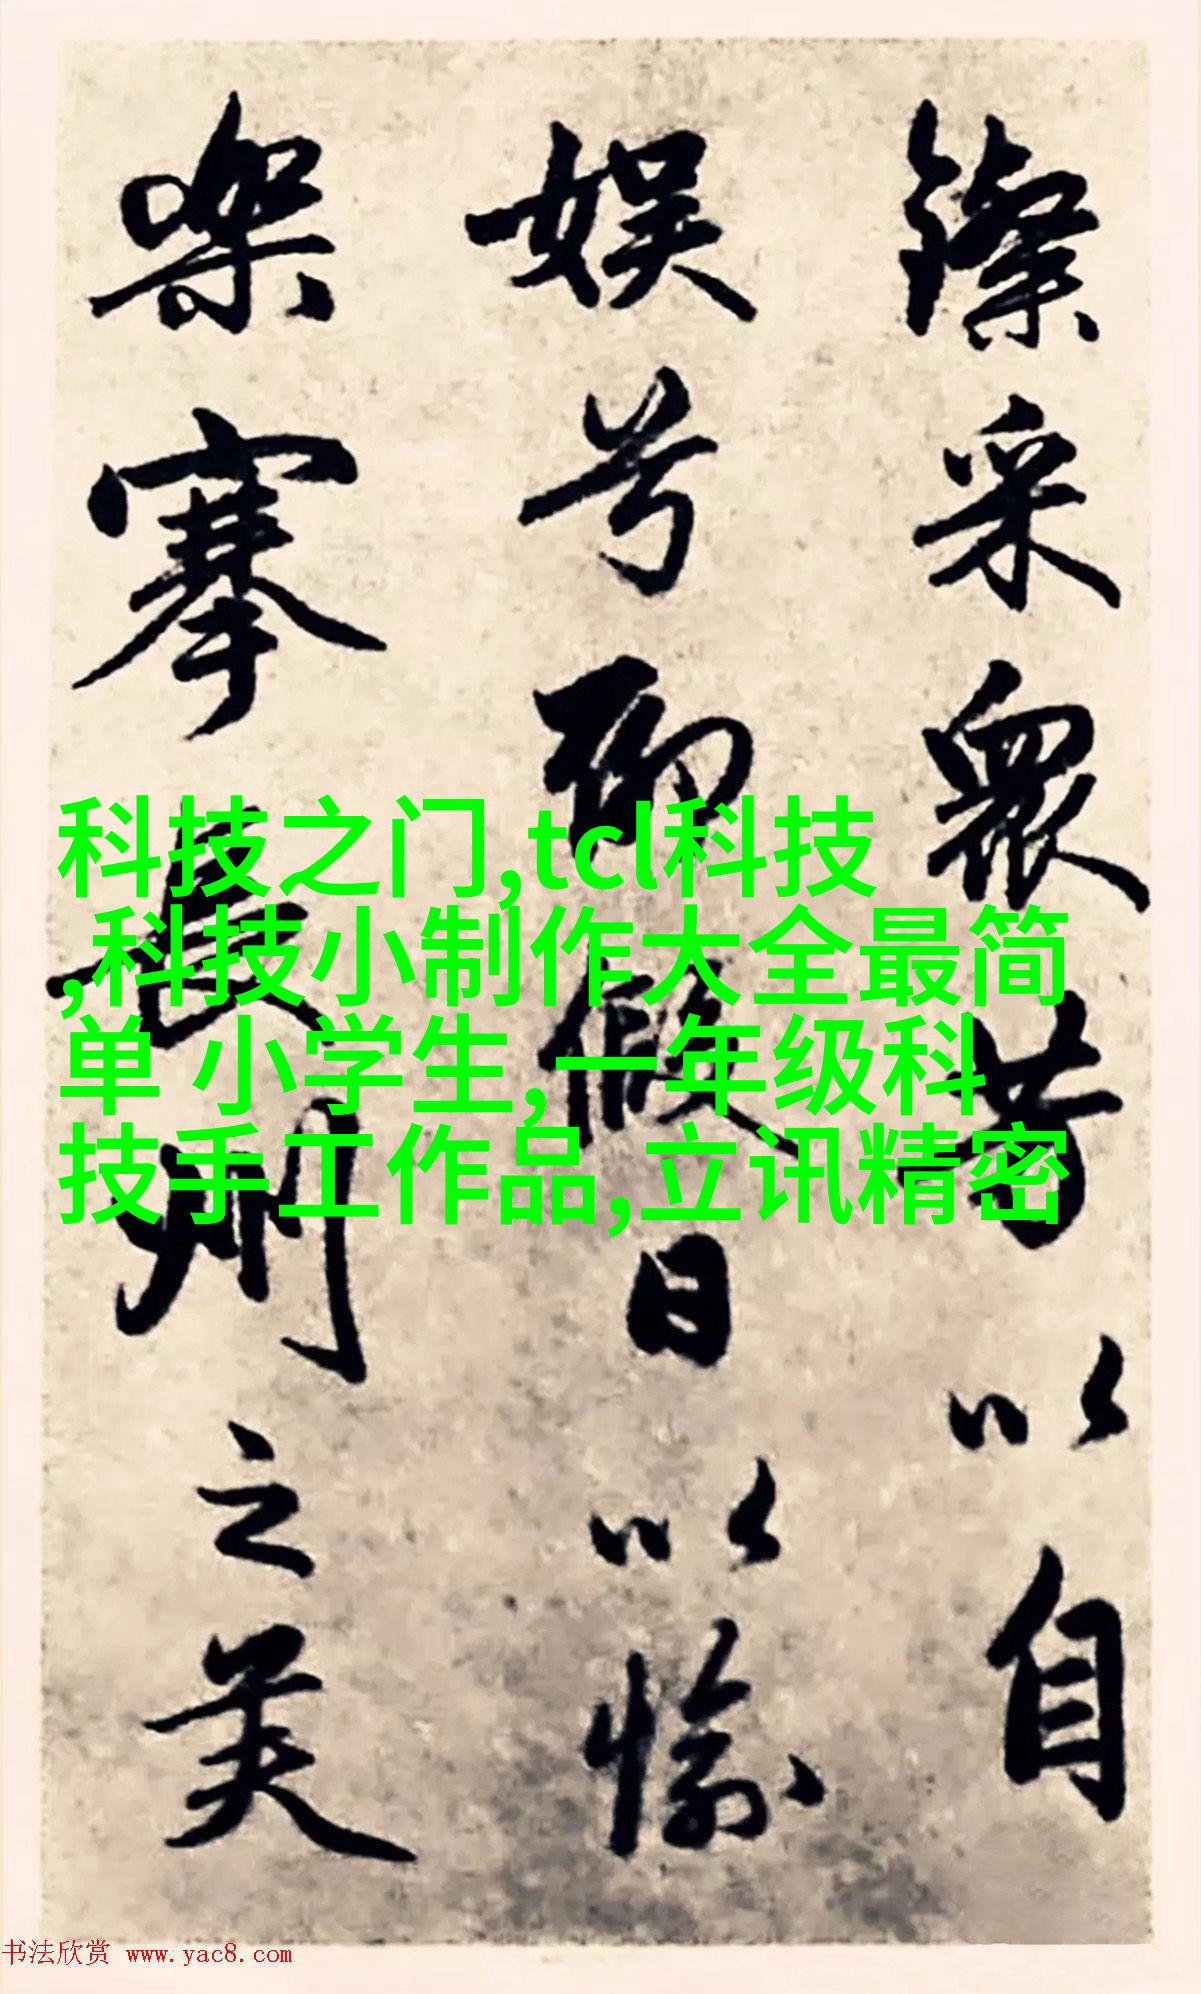 采眾以自
娱兮聊假日以愉
樂搴長州之芙
科技之门,tcl科技
,科技小制作大全最简
单 小学生,一年级科
技手工作品,立讯精密
书法欣赏 www.yac8.com